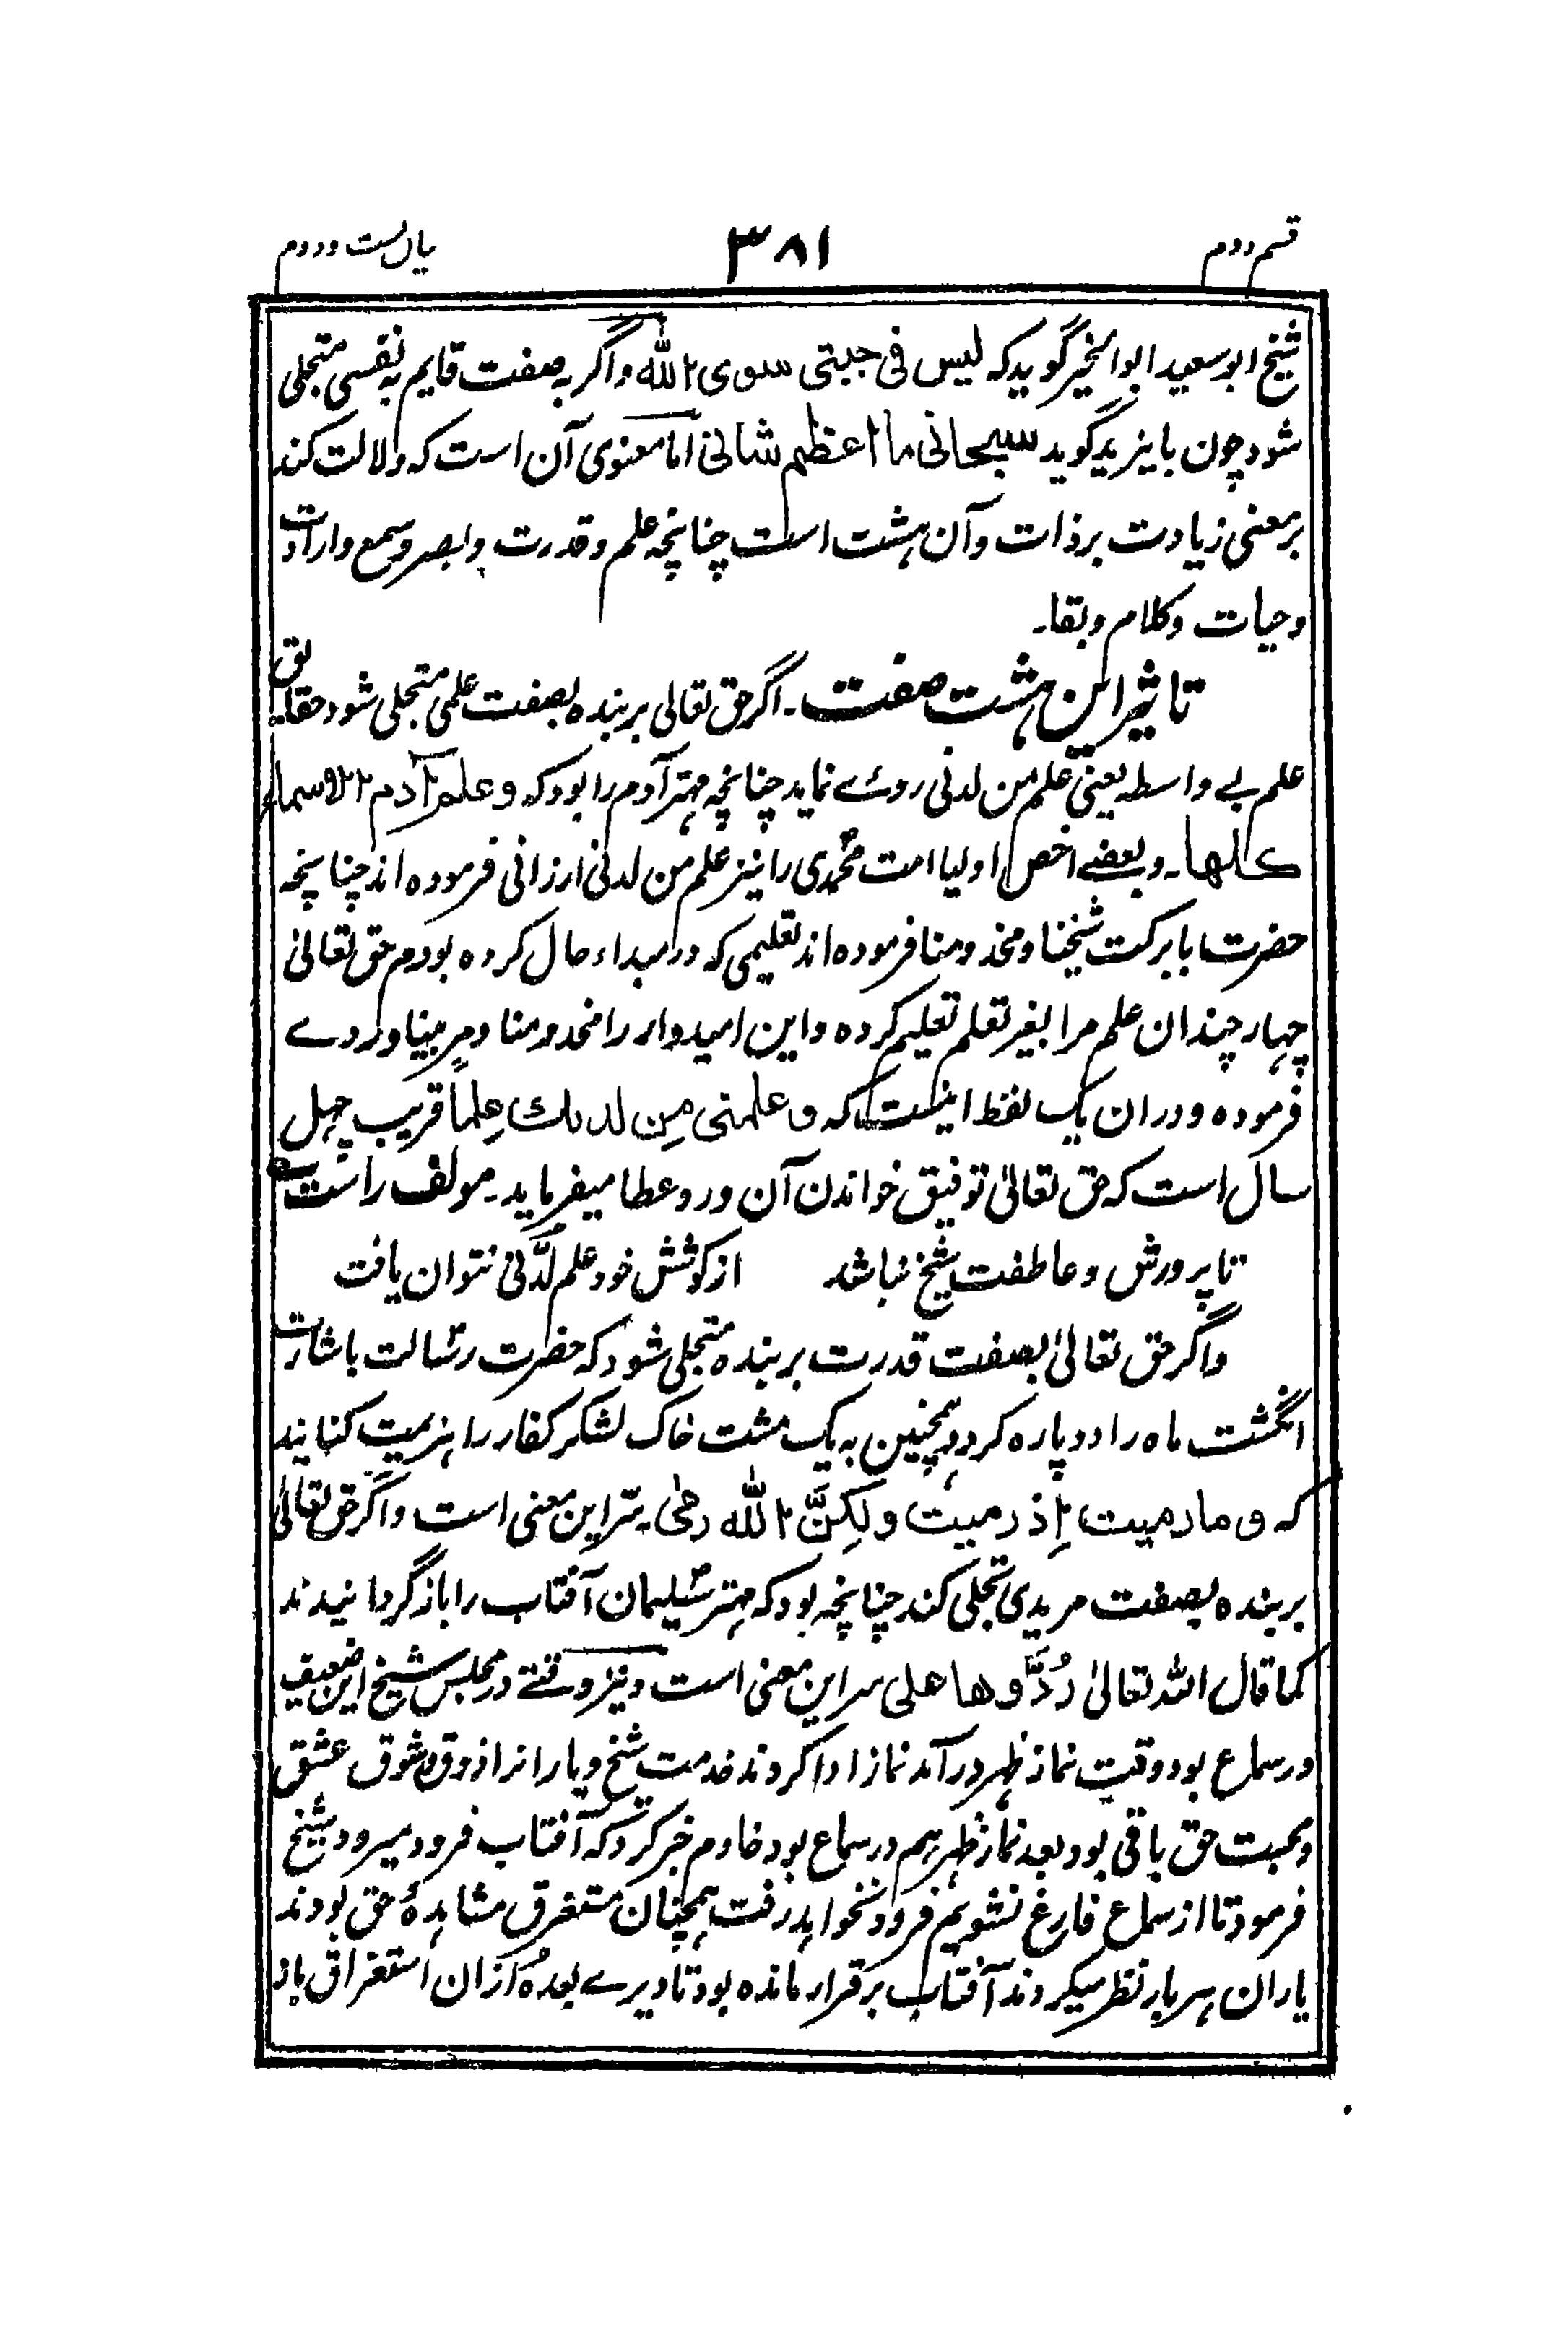 قسم دوم
۳۸۱
بیان بست و دوم
شیخ ابو سعید ابوالخیر گوید که لیس فی جبتی سوی الله و اگر به صفت قایم به نفسی متجلی
شود چون بایزید گوید سبحانی ما اعظم شانی اما معنوی آن است که دلالت کند
بر معنی زیادت بر ذات و آن هشت است چنانچه علم و قدرت و بصر و سمع و ارادت
و حیات و کلام و بقا۔
تاثیر این هشت صفت۔ اگر حق تعالی بر بنده بصفت علمی متجلی شود حقایق
علم بے واسطه یعنی علم من لدنی روئے نماید چنانچه مهتر آدم را بود که و علم آدم الاسماء
کلها۔ و بعضے اخص اولیا امت محمدی را نیز علم من لدنی ارزانی فرموده اند چنانچه
حضرت با برکت شیخنا و مخدومنا فرموده اند تعلیمی که در مبداء حال کرده بودم حق تعالی
چهار چندان علم مرا بغیر تعلم تعلیم کرده و این امیدوار را مخدومنا و مربینا وردے
فرموده و در ان یک لفظ اینست که و علمنی مِن لدنك عِلماً قریب چهل
سال است که حق تعالیٰ توفیق خواندن آن ورد عطا میفرماید۔ مولف راست
تا پرورش و عاطفت شیخ نباشد از کوشش خود علم لَّدنی نتوان یافت
و اگر حق تعالیٰ بصفت قدرت بر بنده متجلی شود که حضرت رسالت باشارت
انگشت ماه را دو پاره کرد و همچنین به یک مشت خاک لشکر کفار را هزیمت کنانید
که و ما رمیت اِذ رمیت و لکِنَّ الله رمی۔ سر این معنی است و اگر حق تعالیٰ
بر بنده بصفت مریدی تجلی کند چنانچه بود که مهتر سلیمان آفتاب را باز گردانیدند
کما قال الله تعالیٰ رُدُّوها علی سر این معنی است و نیز وقتے در مجلس شیخ این ضعیف
در سماع بود وقت نماز ظهر در آمد نماز ادا کردند خدمت شیخ و یارانرا ذوق و شوق عشق
و محبت حق باقی بود بعد نماز ظهر هم در سماع بود خادم خبر کرد که آفتاب فرود میرود شیخ
فرمود تا از سماع فارغ نشویم فرود نخواهد رفت همچنان مستغرق مشاهدهٔ حق بودند
یاران هر بار نظر میکردند آفتاب برقرار مانده بود تا دیرے بعدهٔ ازان استغراق باز